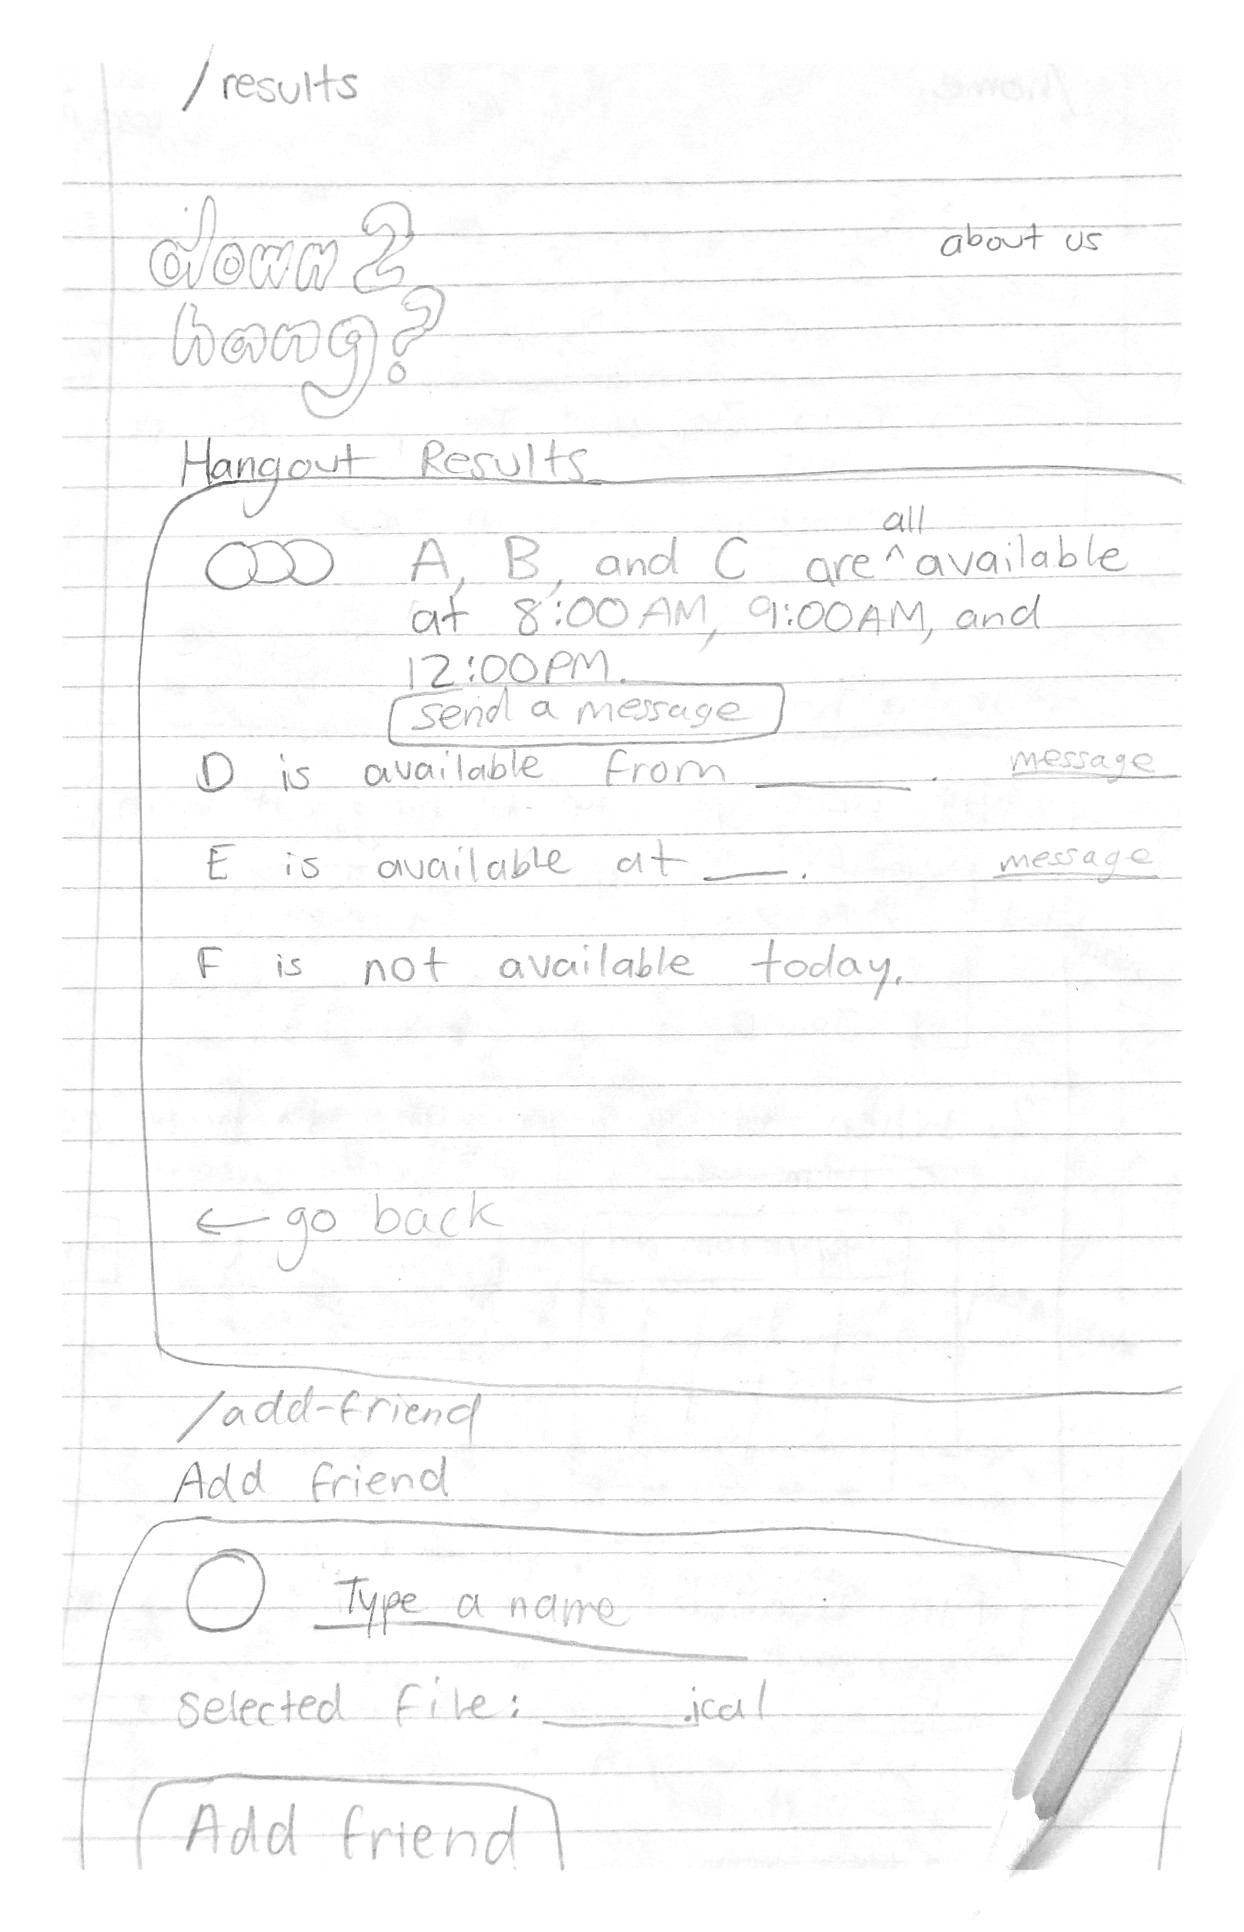 /results
down2
hang?
about us
Hangout Results
A, B, and C are ^all available
at 8:00AM, 9:00AM, and
12:00PM.
send a message
D is available from ______. message
E is available at ___. message
F is not available today.
← go back
/add-friend
Add friend
Type a name
selected file: ______.ical
Add friend